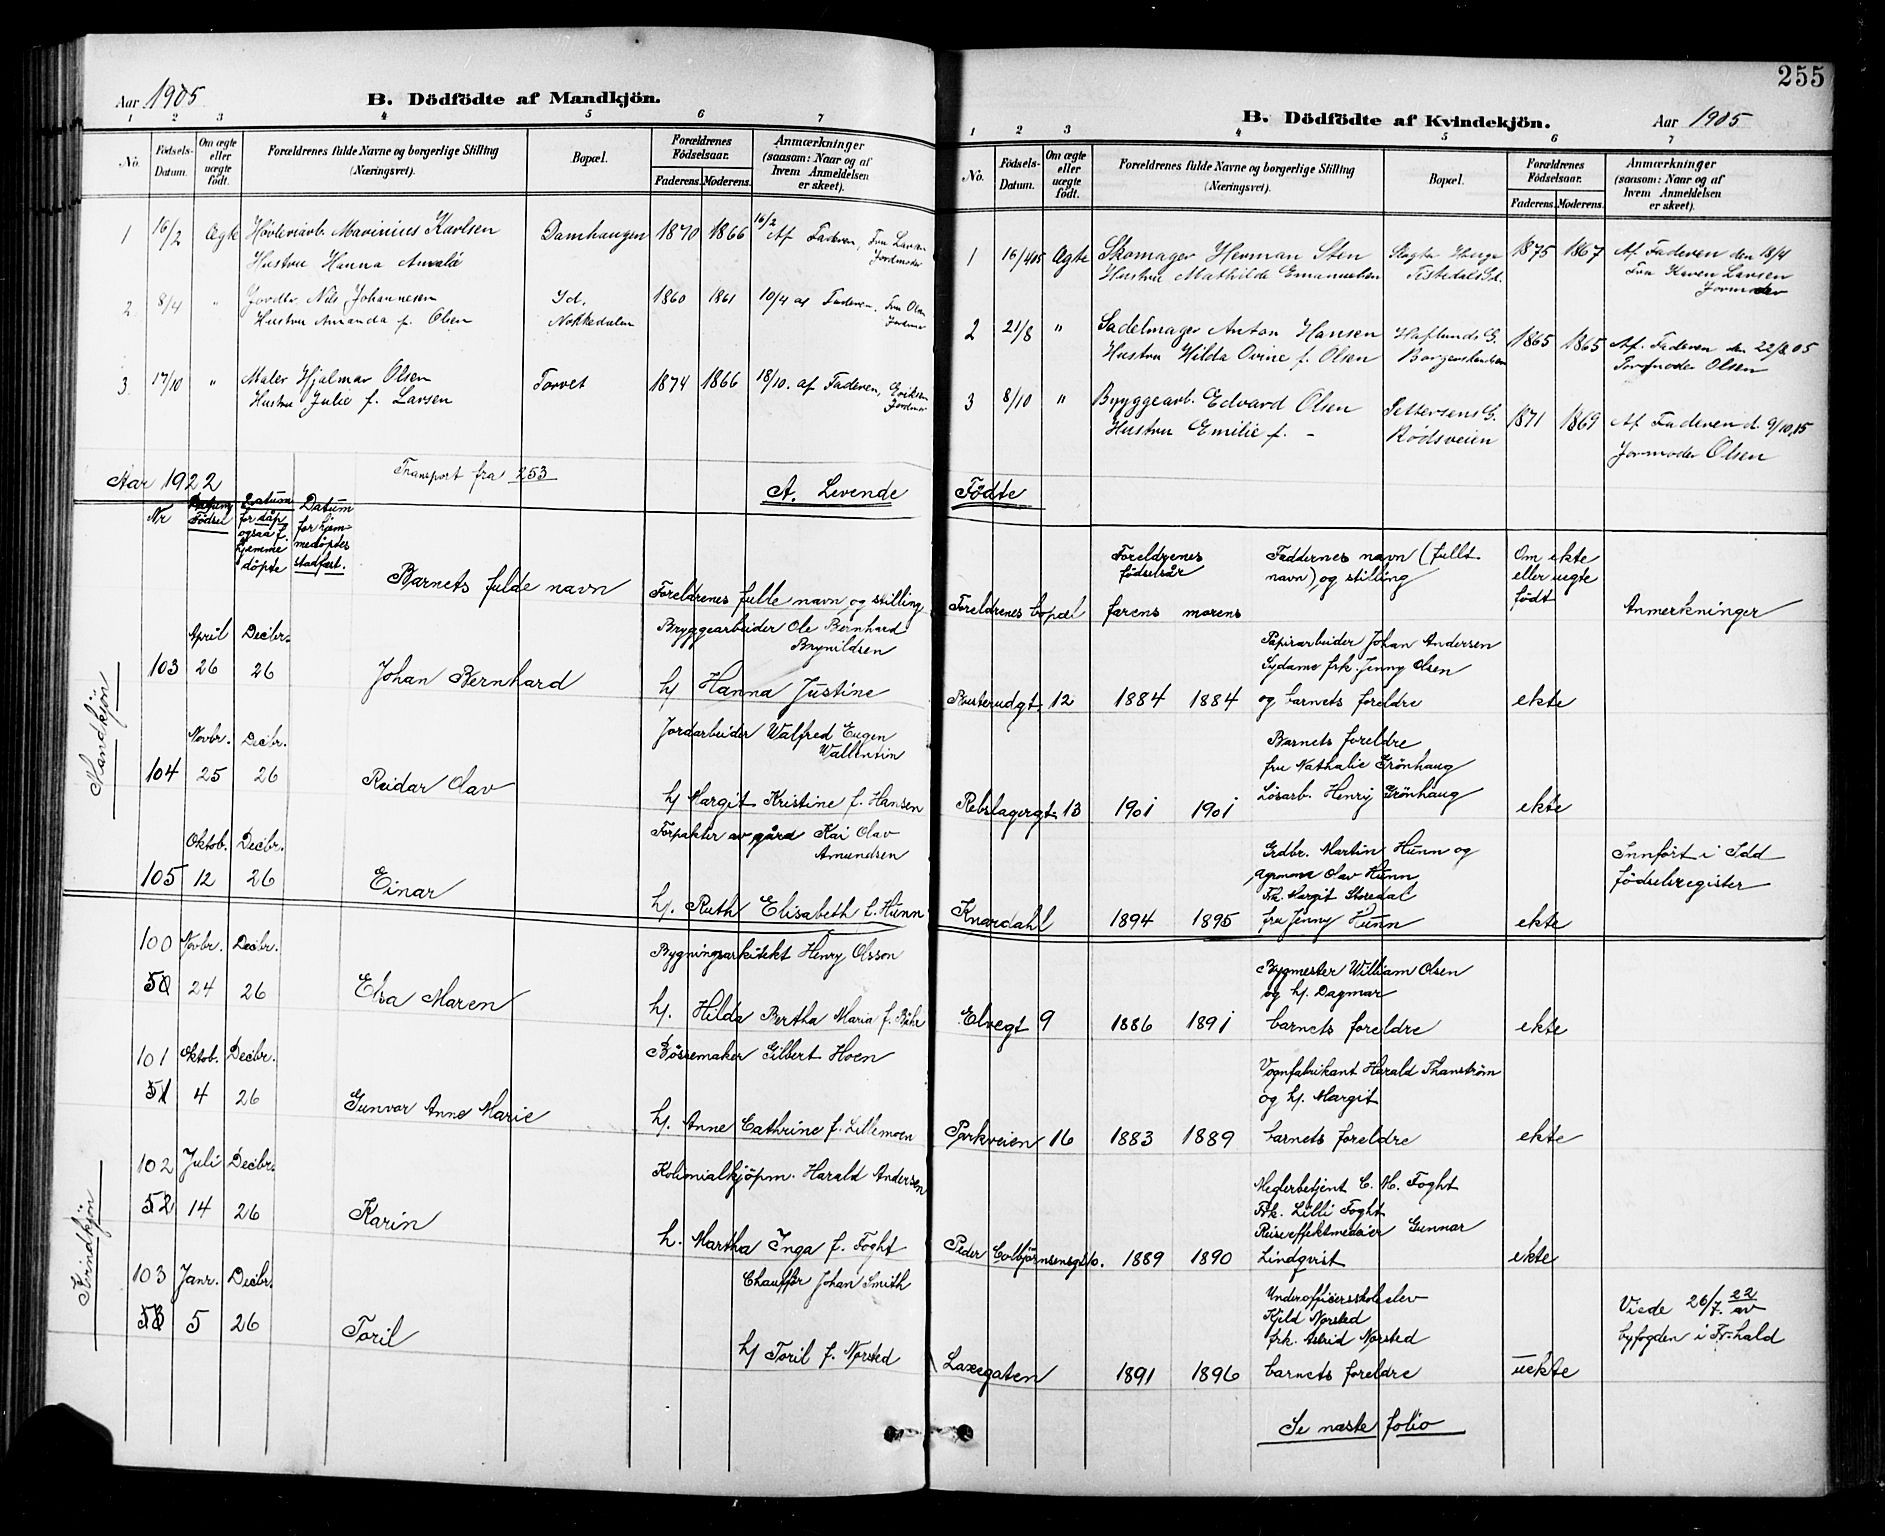 Aar 1905
B. Dödfödte af Mandkjön.
1 2 3 4 5 6 7
No. Födsels-Datum. Om ægte eller uægte födt. Forældrenes fulde Navne og borgerlige Stilling (Næringsvei). Bopæl. Forældrenes Födselsaar. Faderens. Moderens. Anmærkninger (saasom: Naar og af hvem Anmeldelsen er skeet).
1 16/2 Ægte Høvleriarb. Marinius Karlsen Damhaugen 1870 1866 16/2 Af Faderen, Fru Larsen
Hustru Hanna Amalie Jordmoder
2 8/4 " Jordbr. Nils Johannesen Id. 1860 1861 10/4 af Faderen. Fru Olsen
Hustru Amanda f. Olsen Nokkedalen Jordmor
3 17/10 " Maler Hjalmar Olsen Torvet 1874 1866 18/10. af Faderen, Eriksen
Hustru Julie f. Larsen Jordmor
Aar 1922 Transport fra 253 A. Levende
Nr Födsel Datum for dåp ogsaa f. hjemme döpte Datum for hjemmedöptes stadfæst. Barnets fulde navn Foreldrenes fulle navn og stilling
Mandkjön
April Decbr. Bryggearbeider Ole Bernhard
Brynildsen
103 26 26 Johan Bernhard h/ Hanna Justine
Novbr. Decbr. Jordarbeider Walfred Eugen
Wallentin
104 25 26 Reidar Olav h/ Margit Kristine f. Hansen
Oktob. Decbr. Forpakter av gård Kai Olav
Amundsen
105 12 26 Einar h/. Ruth Elisabeth f. Hunn
Kvindkjön
100 Novbr. Decbr. Bygningsarkitekt Henry Olsson
50 24 26 Elsa Maren h/. Hilda Bertha Maria f.
101 Oktob. Decbr. Bössemaker Gilbert Hoen
51 4 26 Gunvor Anne Marie h/. Anne Cathrine f. Lillemoen
102 Juli Decbr. Kolonialkjöpm. Harald Andersen
52 14 26 Karin h. Martha Inga f. Foght
103 Janr. Decbr. Chauffør Johan Smith
53 5 26 Toril h/ Toril f. Norsted
255
B. Dödfödte af Kvindekjön.
Aar 1905
1 2 3 4 5 6 7
No. Födsels-Datum. Om ægte eller uægte födt. Forældrenes fulde Navne og borgerlige Stilling (Næringsvei). Bopæl. Forældrenes Födselsaar. Faderens. Moderens. Anmærkninger (saasom: Naar og af hvem Anmeldelsen er skeet).
1 16/4 05 Ægte Skomager Herman Sten 1875 1867 Af Faderen den 18/4
Hustru Mathilde Emanuelsen Tistedals Fru Karen Larsen
Jormoder
2 21/8 " Sadelmager Anton Hansen Haflunds G. 1865 1865 Af. Faderen den 22/8 05
Hustru Hilda Ovine f. Olsen Jormoder Olsen
3 8/10 " Bryggearb. Edvard Olsen Pettersens G. 1871 1869 Af Faderen d. 9/10,15
Hustru Emilie f. - Rödsveien Jormoder Olsen
Födte
Foreldrenes bopæl Foreldrenes födselsår farens morens Faddernes navn (fullt navn) og stilling Om ekte eller uegte födt Anmerkninger
Papirarbeider Johan Andersen
Sydame frk. Jenny Olsen
Busterudgt. 12 1884 1884 og barnets foreldre ekte
Barnets foreldre
fru Nathalie Grönhaug
Rebslagergt. 13 1901 1901 Lösarb. Henry Grönhaug ekte
Grdbr. Martin Hunn og Innfört i Idd
Olav Hunn födselsregister
Frk. Margit Storedal
Knardahl 1894 1895 fru Jenny Hunn ekte
Bygmester William Olsen
og h/. Dagmar
Elvegt 9 1886 1891 barnets foreldre ekte
Vognfabrikant Harald Thanström
og h/. Margit
Parkveien 16 1883 1889 barnets foreldre ekte
Meglerbetjent C. M. Foght
Frk. Lilli Foght
Reiseeffektmedaier Gunnar
Peder Colbjörnsensgt 1889 1890 Lindqvist ekte
Underofficersskoleelev Viede 26/7. 22 av
Kjeld Norsted byfogden i Fr-hald
frk. Astrid Norsted
Laxegaten 1891 1896 barnets foreldre uekte
Se næste folio